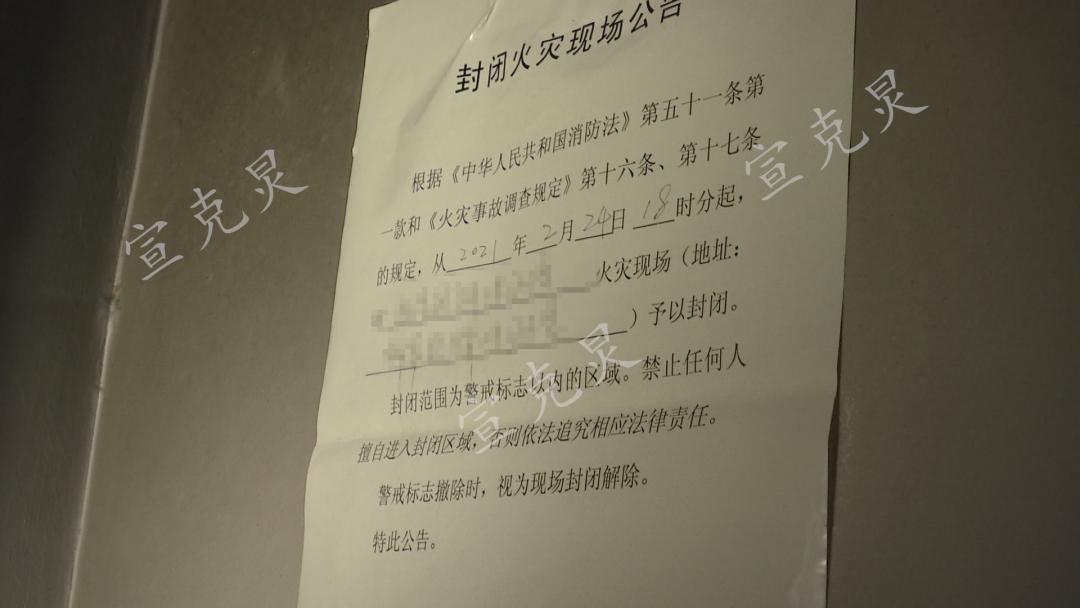 封闭火灾现场公告
根据《中华人民共和国消防法》第五十一条第
一款和《火灾事故调查规定》第十六条、第十七条
的规定，从2021年2月24日18时分起，
火灾现场（地址：
）予以封闭。
封闭范围为警戒标志以内的区域。禁止任何人
擅自进入封闭区域，否则依法追究相应法律责任。
警戒标志撤除时，视为现场封闭解除。
特此公告。
宣克炅
宣克炅
宣克炅